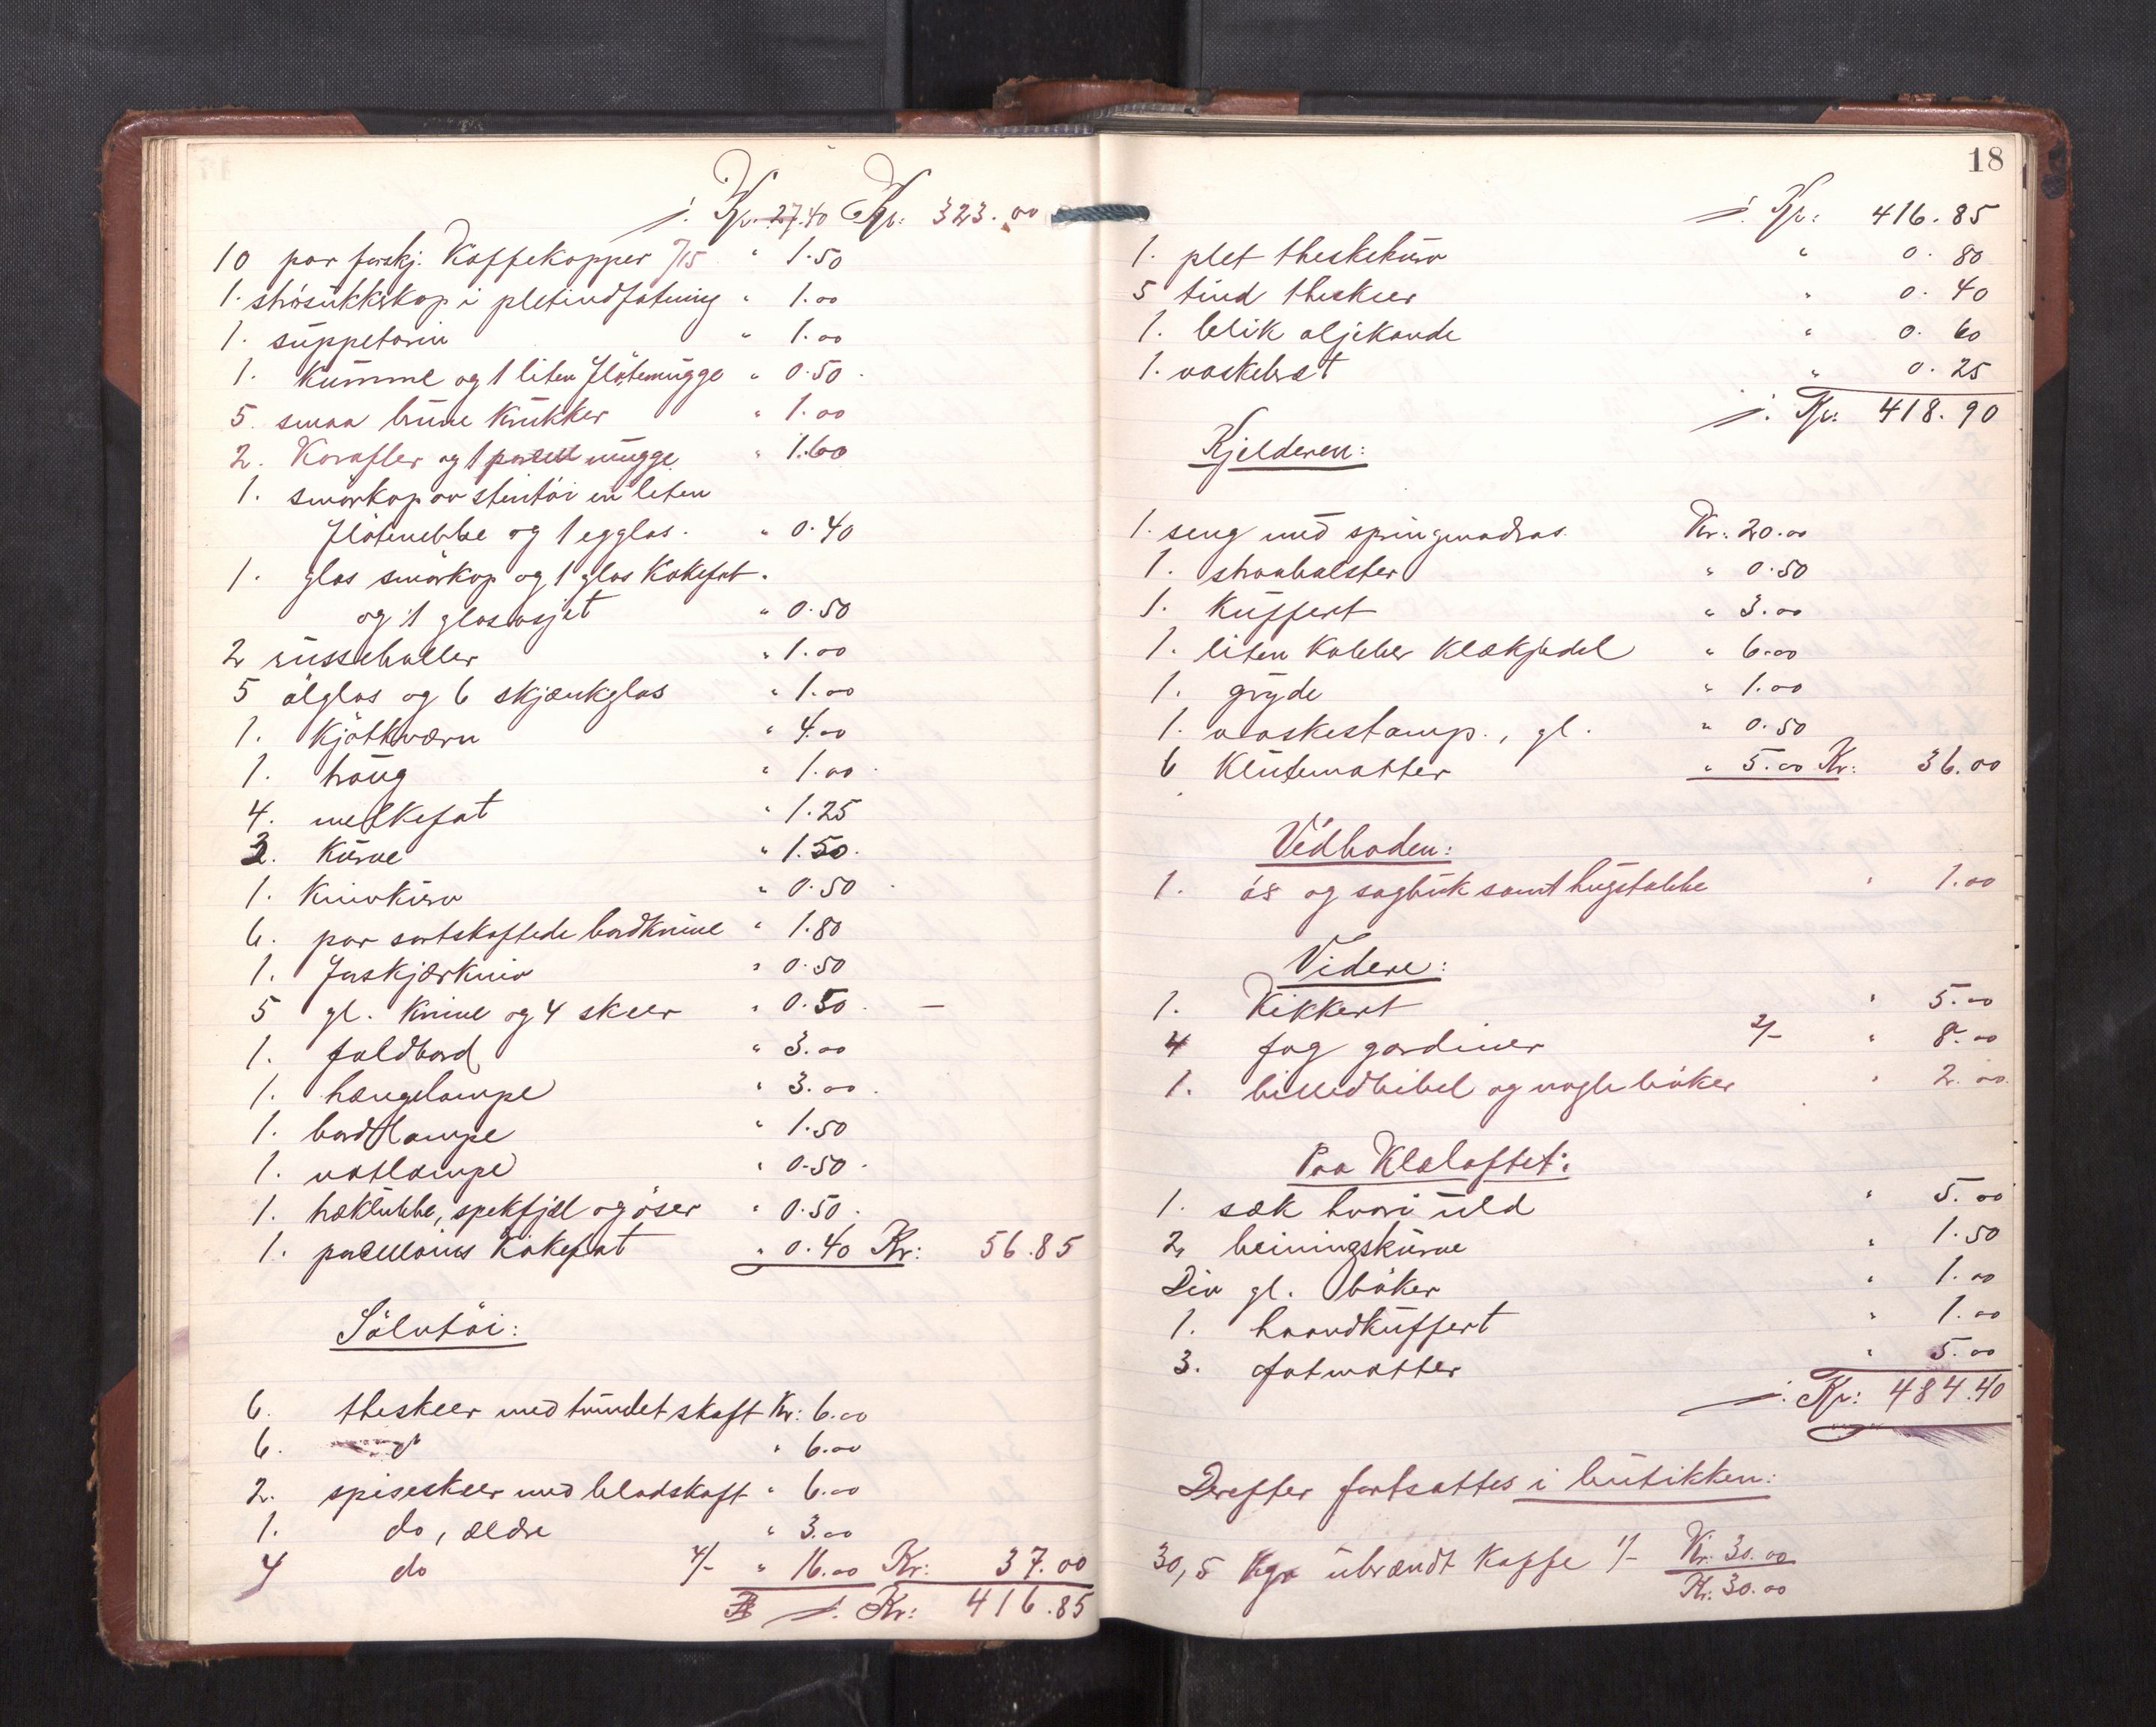 ·/. Kr. 27.40 Kr: 323.00
10 par forskj. Kaffekopper 7/15 " 1.50
1. strösukkerkop i pletindfatning " 1.00
1. suppeterin " 1.00
1. Kumme og 1 liten flötemugge " 0.50
5. smaa brune Krukker " 1.00
2. Karafler og 1 porcell mugge " 1.60
1. smörkop av stentöi en liten
flötenebbe og 1 egglas. " 0.40
1. glas smörkop og 1 glas Kakefat.
og 1 glasasjet " 0.50
2 russeboller " 1.00
5 ölglas og 6 skjænkglas " 1.00
1. Kjötkværn " 4.00
1. traug " 1.00
4. melkefat " 1.25
3. Kurve " 1.50
1. Knivkurv " 0.50
6. par sortskaftede bordknive " 1.80
1. Forskjærkniv " 0.50
5 gl. Knive og 4 skeer " 0.50 –
1. foldbord " 3.00
1. hængelampe " 3.00
1. bordlampe " 1.50
1. natlampe " 0.50
1. træklubbe, spekfjæl og öser " 0.50
1. porcellains Kakefat " 0.40 Kr: 56.85
Sölvtöi:
6. theskeer med tvundet skaft Kr: 6.00
6. " 6.00
2. spiseskeer med bladskaft " 6.00
1. do, ældre " 3.00
4 do 4/- " 16.00 Kr: 37.00
·/. Kr: 416.85
18
·/. Kr: 416.85
1. plet theskekurv " 0.80
5 tind theskeer " 0.40
1. blik oljekande " 0.60
1. vaskebræt " 0.25
·/. Kr: 418.90
Kjelderen:
1. seng med springmadras Kr: 20.00
1. straabolster " 0.50
1. Kuffert " 3.00
1. liten Kobber Klækjedel " 6.00
1. gryde " 1.00
1. vaskestamp., gl. " 0.50
6 Klutematter " 5.00 Kr: 36.00
Vedboden:
1. öx og sagbuk samt hugstabbe " 1.00
Videre:
1. Kikkert " 5.00
4 fag gardiner 2/- " 8.00
1. billedbibel og nogle böker " 2.00
Paa Klæloftet:
1. sæk hvori uld " 5.00
2, beiningskurve " 1.50
Div gl. böker " 1.00
1. haandkuffert " 1.00
3. fotmatter " 5.00
·/. Kr: 484.40
Derefter fortsattes i butikken:
30,5 Kgr ubrændt Kaffe 1/- Kr. 30.00
Kr. 30.00